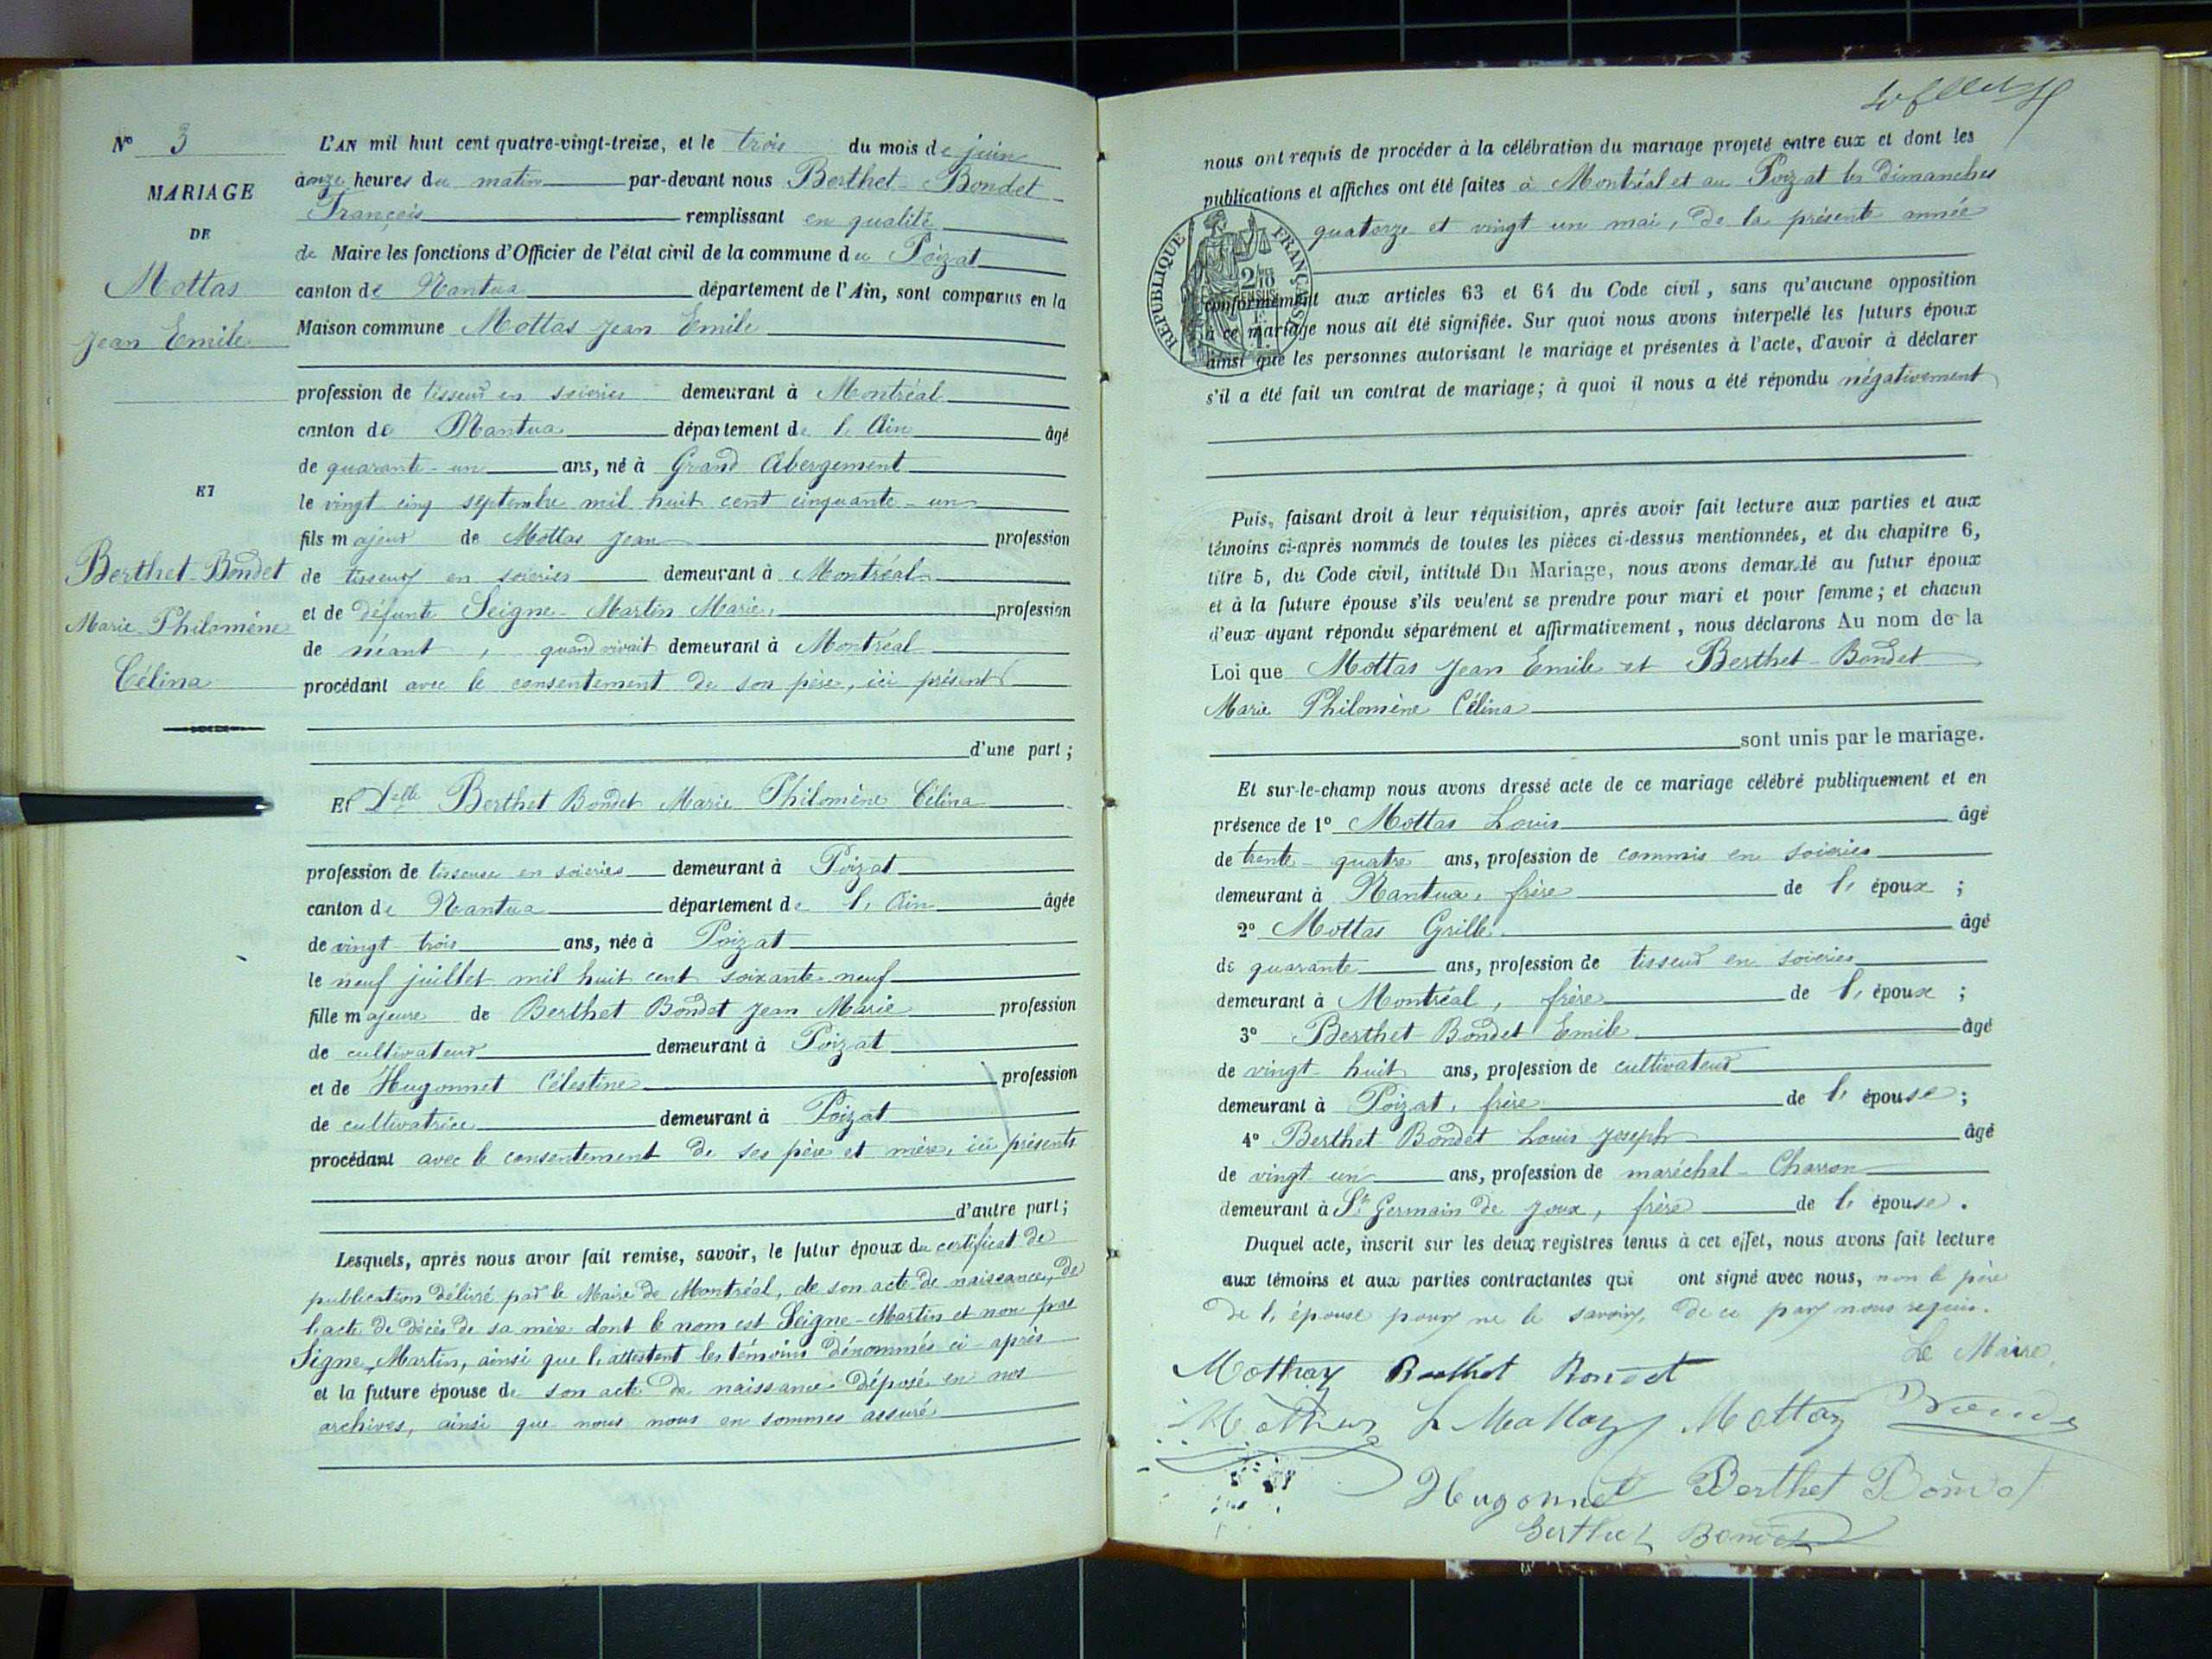 N° 3
MARIAGE
DE
Mottas
Jean Emile
ET
Berthet-Bondet
Marie Philomène
Célina
L'AN mil huit cent quatre-vingt-treize, et le trois du mois de juin
à onze heures du matin par-devant nous Berthet-Bondet
François remplissant en qualité
de Maire les fonctions d'Officier de l'état civil de la commune du Poizat
canton de Nantua département de l'Ain, sont comparus en la
Maison commune Mottas Jean Emile
profession de tisseur en soieries demeurant à Montréal
canton de Nantua département de l'Ain âgé
de quarante-un ans, né à Grand Abergement
le vingt cinq septembre mil huit cent cinquante-un
fils majeur de Mottas Jean profession
de tisseur en soieries demeurant à Montréal
et de défunte Seigne-Martin Marie, profession
de néant, quand vivait demeurant à Montréal
procédant avec le consentement de son père, ici présent
d'une part;
Et Delle Berthet Bondet Marie Philomène Célina
profession de tisseuse en soieries demeurant à Poizat
canton de Nantua département de l'Ain âgée
de vingt-trois ans, née à Poizat
le neuf juillet mil huit cent soixante-neuf
fille majeure de Berthet Bondet Jean Marie profession
de cultivateur demeurant à Poizat
et de Hugonnet Célestine profession
de cultivatrice demeurant à Poizat
procédant avec le consentement de ses père et mère, ici présents
d'autre part;
Lesquels, après nous avoir fait remise, savoir, le futur époux du certificat de
publication délivré par le Maire de Montréal, de son acte de naissance, de
l'acte de décès de sa mère dont le nom est Seigne-Martin et non pas
Signe-Martin, ainsi que l'attestent les témoins dénommés ci-après
et la future épouse de son acte de naissance déposé en nos
archives, ainsi que nous nous en sommes assuré
nous ont requis de procéder à la célébration du mariage projeté entre eux et dont les
publications et affiches ont été faites à Montréal et au Poizat les Dimanches
quatorze et vingt un mai, de la présente année
REPUBLIQUE FRANÇAISE
conformément aux articles 63 et 64 du Code civil, sans qu'aucune opposition
à ce mariage nous ait été signifiée. Sur quoi nous avons interpellé les futurs époux
ainsi que les personnes autorisant le mariage et présentes à l'acte, d'avoir à déclarer
s'il a été fait un contrat de mariage; à quoi il nous a été répondu négativement
Puis, faisant droit à leur réquisition, après avoir fait lecture aux parties et aux
témoins ci-après nommés de toutes les pièces ci-dessus mentionnées, et du chapitre 6,
titre 5, du Code civil, intitulé Du Mariage, nous avons demandé au futur époux
et à la future épouse s'ils veulent se prendre pour mari et pour femme; et chacun
d'eux ayant répondu séparément et affirmativement, nous déclarons Au nom de la
Loi que Mottas Jean Emile et Berthet-Bondet
Marie Philomène Célina
sont unis par le mariage.
Et sur-le-champ nous avons dressé acte de ce mariage célébré publiquement et en
présence de 1° Mottas Louis âgé
de trente-quatre ans, profession de commis en soieries
demeurant à Nantua, frère de l'époux;
2° Mottas Grille âgé
de quarante ans, profession de tisseur en soieries
demeurant à Montréal, frère de l'époux;
3° Berthet-Bondet Emile âgé
de vingt-huit ans, profession de cultivateur
demeurant à Poizat, frère de l'épouse;
4° Berthet Bondet Louis Joseph âgé
de vingt un ans, profession de maréchal-Charron
demeurant à St Germain de Joux, frère de l'épouse.
Duquel acte, inscrit sur les deux registres tenus à cet effet, nous avons fait lecture
aux témoins et aux parties contractantes qui ont signé avec nous, non le père
de l'épouse pour ne le savoir, de ce par nous requis.
Le Maire,
Berthet Bondet
Mottaz
Hugonnet Berthet Bondet
Berthet Bondet